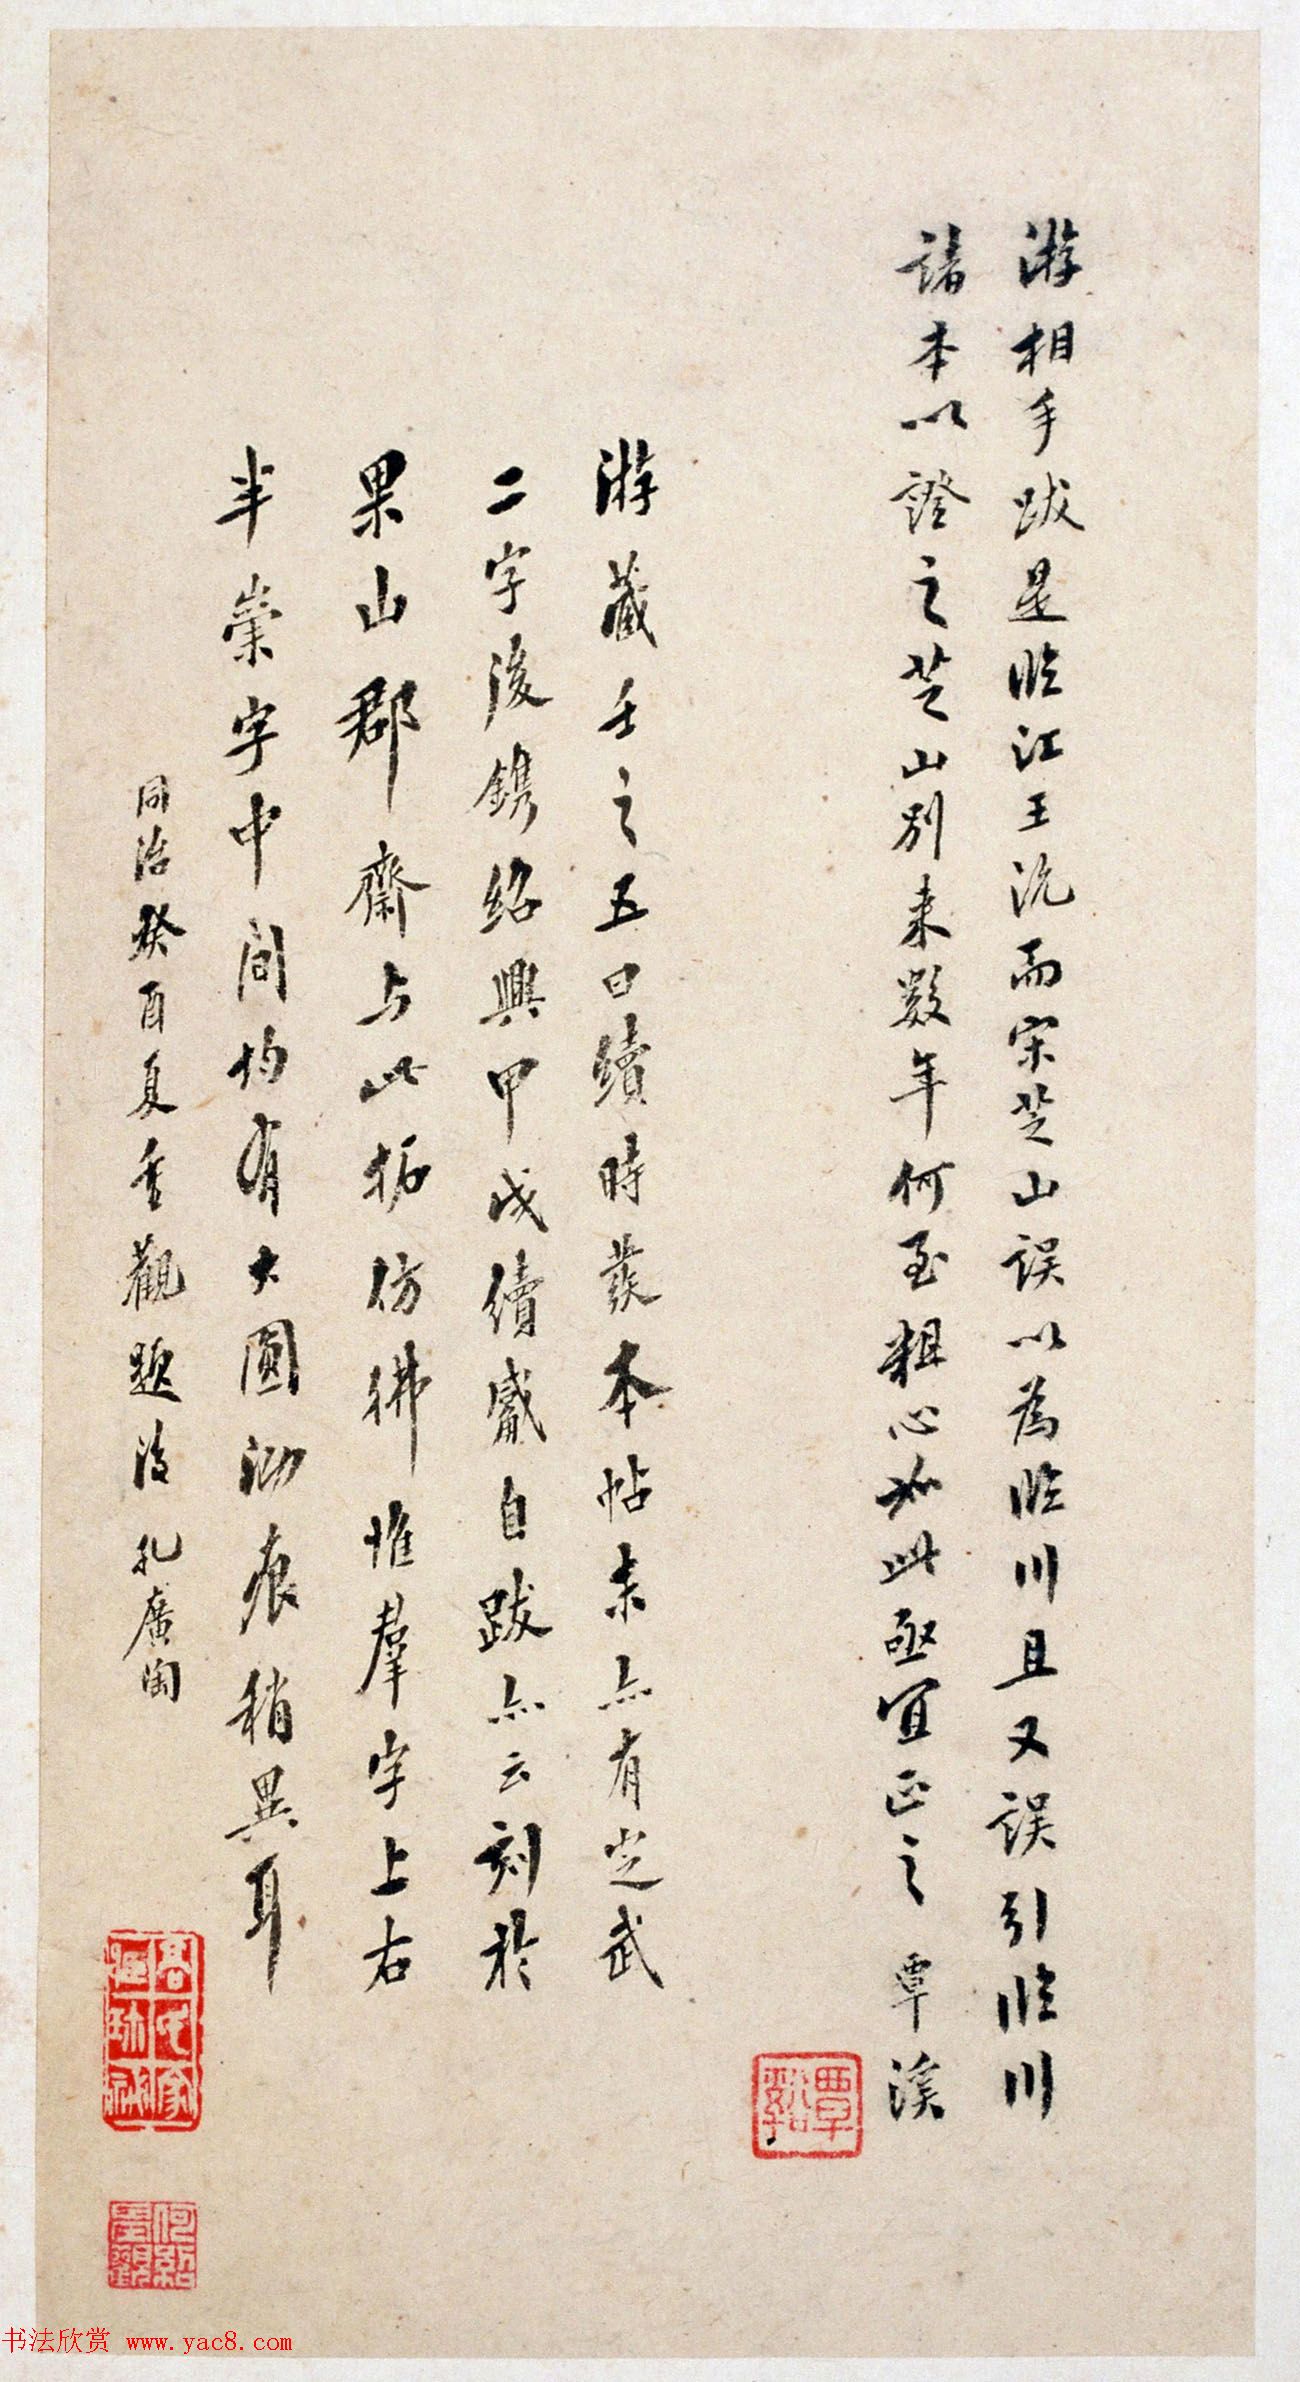 游相手跋是临江王沇而宋芝山误以為临川且又误引临川
諸本以證之芝山别来數年何至粗心如此亟宜正之 覃溪
覃谿
游藏壬之五曰續時發本帖末亦有定武
二字後鐫紹興甲戌續觀自跋亦云刻於
果山郡齋与此拓仿彿惟羣字上右
半崇字中間均有大圓泐痕稍異耳
同治癸酉夏重觀題後 孔廣陶
书法欣赏 www.yac8.com